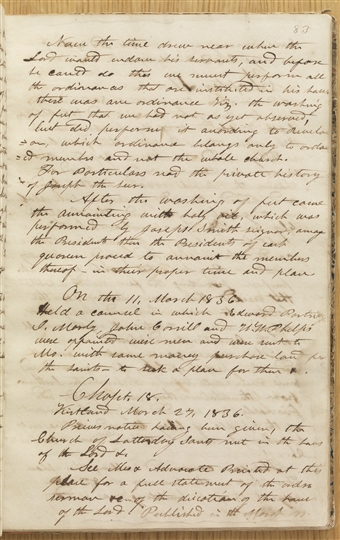 83
Now the time drew near when the
Lord would endow his servants, and before
he could do this we must perform all
the ordinances that are instituted in his house
there was one ordinance viz. the washing
of feet that we had not as yet observed,
but did perform it according to
which ordinance belongs only to ordain
ed members and not the whole church.
For Particulars read the private history
of Joseph the seer.
After this washing of feet came
the annointing with holy oil, which was
performed by Joseph Smith
the President then the Presidents of each
quorum proced to annoint the members
thereof in their proper time and place
On the 11, March 1836
Held a council in which Edward
I. Morly, John Corrill and W. W. Phelps
were apointed wise men and were sent to
Mo. with some money purchase land for
the saints to seek a place for them &.
Chapt. 18.
Kirtland March 27, 1836.
Previus notice having been given, the
Church of Latterday Saints met in the house
of the Lord &.
See Mes & Advocate Printed at this
place for a full statement of the orders
sermon &c of the dedication of the house
of the Lord Published in the March